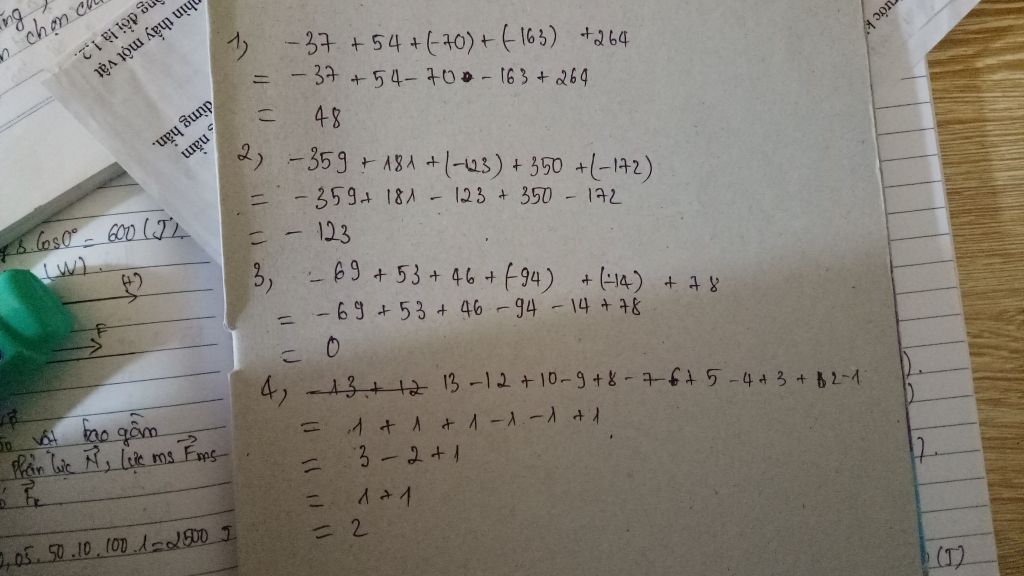 1, -37 + 54 + (-70) + (-163) + 264
= -37 + 54 - 70 - 163 + 264
= 48
2, -359 + 181 + (-123) + 350 + (-172)
= -359 + 181 - 123 + 350 - 172
= -123
3, -69 + 53 + 46 + (-94) + (-14) + 78
= -69 + 53 + 46 - 94 - 14 + 78
= 0
4, 13 - 12 + 10 - 9 + 8 - 7 - 6 + 5 - 4 + 3 + 2 - 1
= 1 + 1 + 1 - 1 - 1 + 1
= 3 - 2 + 1
= 1 + 1
= 2
nhìn thấy một vật
đối là 1,2
nằm
dùng hẳn.
chọn
.cos0° = 600 (J).
(W).
F
vật bao gồm
phản lực N, lực ms Fms
,05.50.10.100.1 = 2500 J
(J)